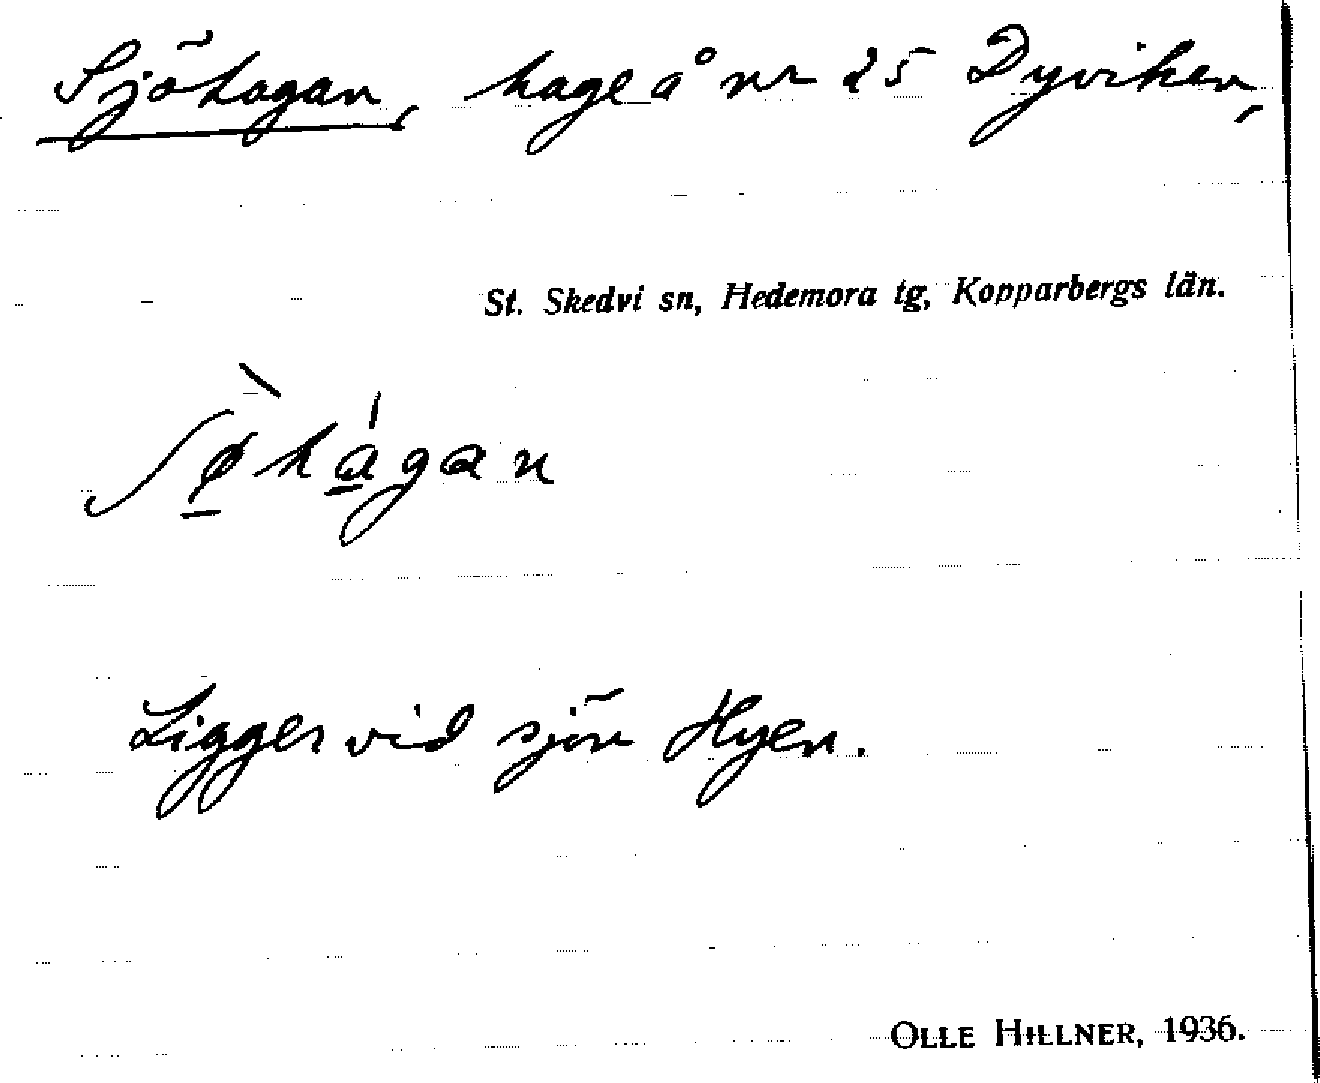 Sjöhagan, hage å nr 25 Dyviken,
St. Skedvi sn, Hedemora tg, Kopparbergs län.
ʃø̱̀há̱gan
Ligger vid sjön Hyen.
OLLE HILLNER, 1936.